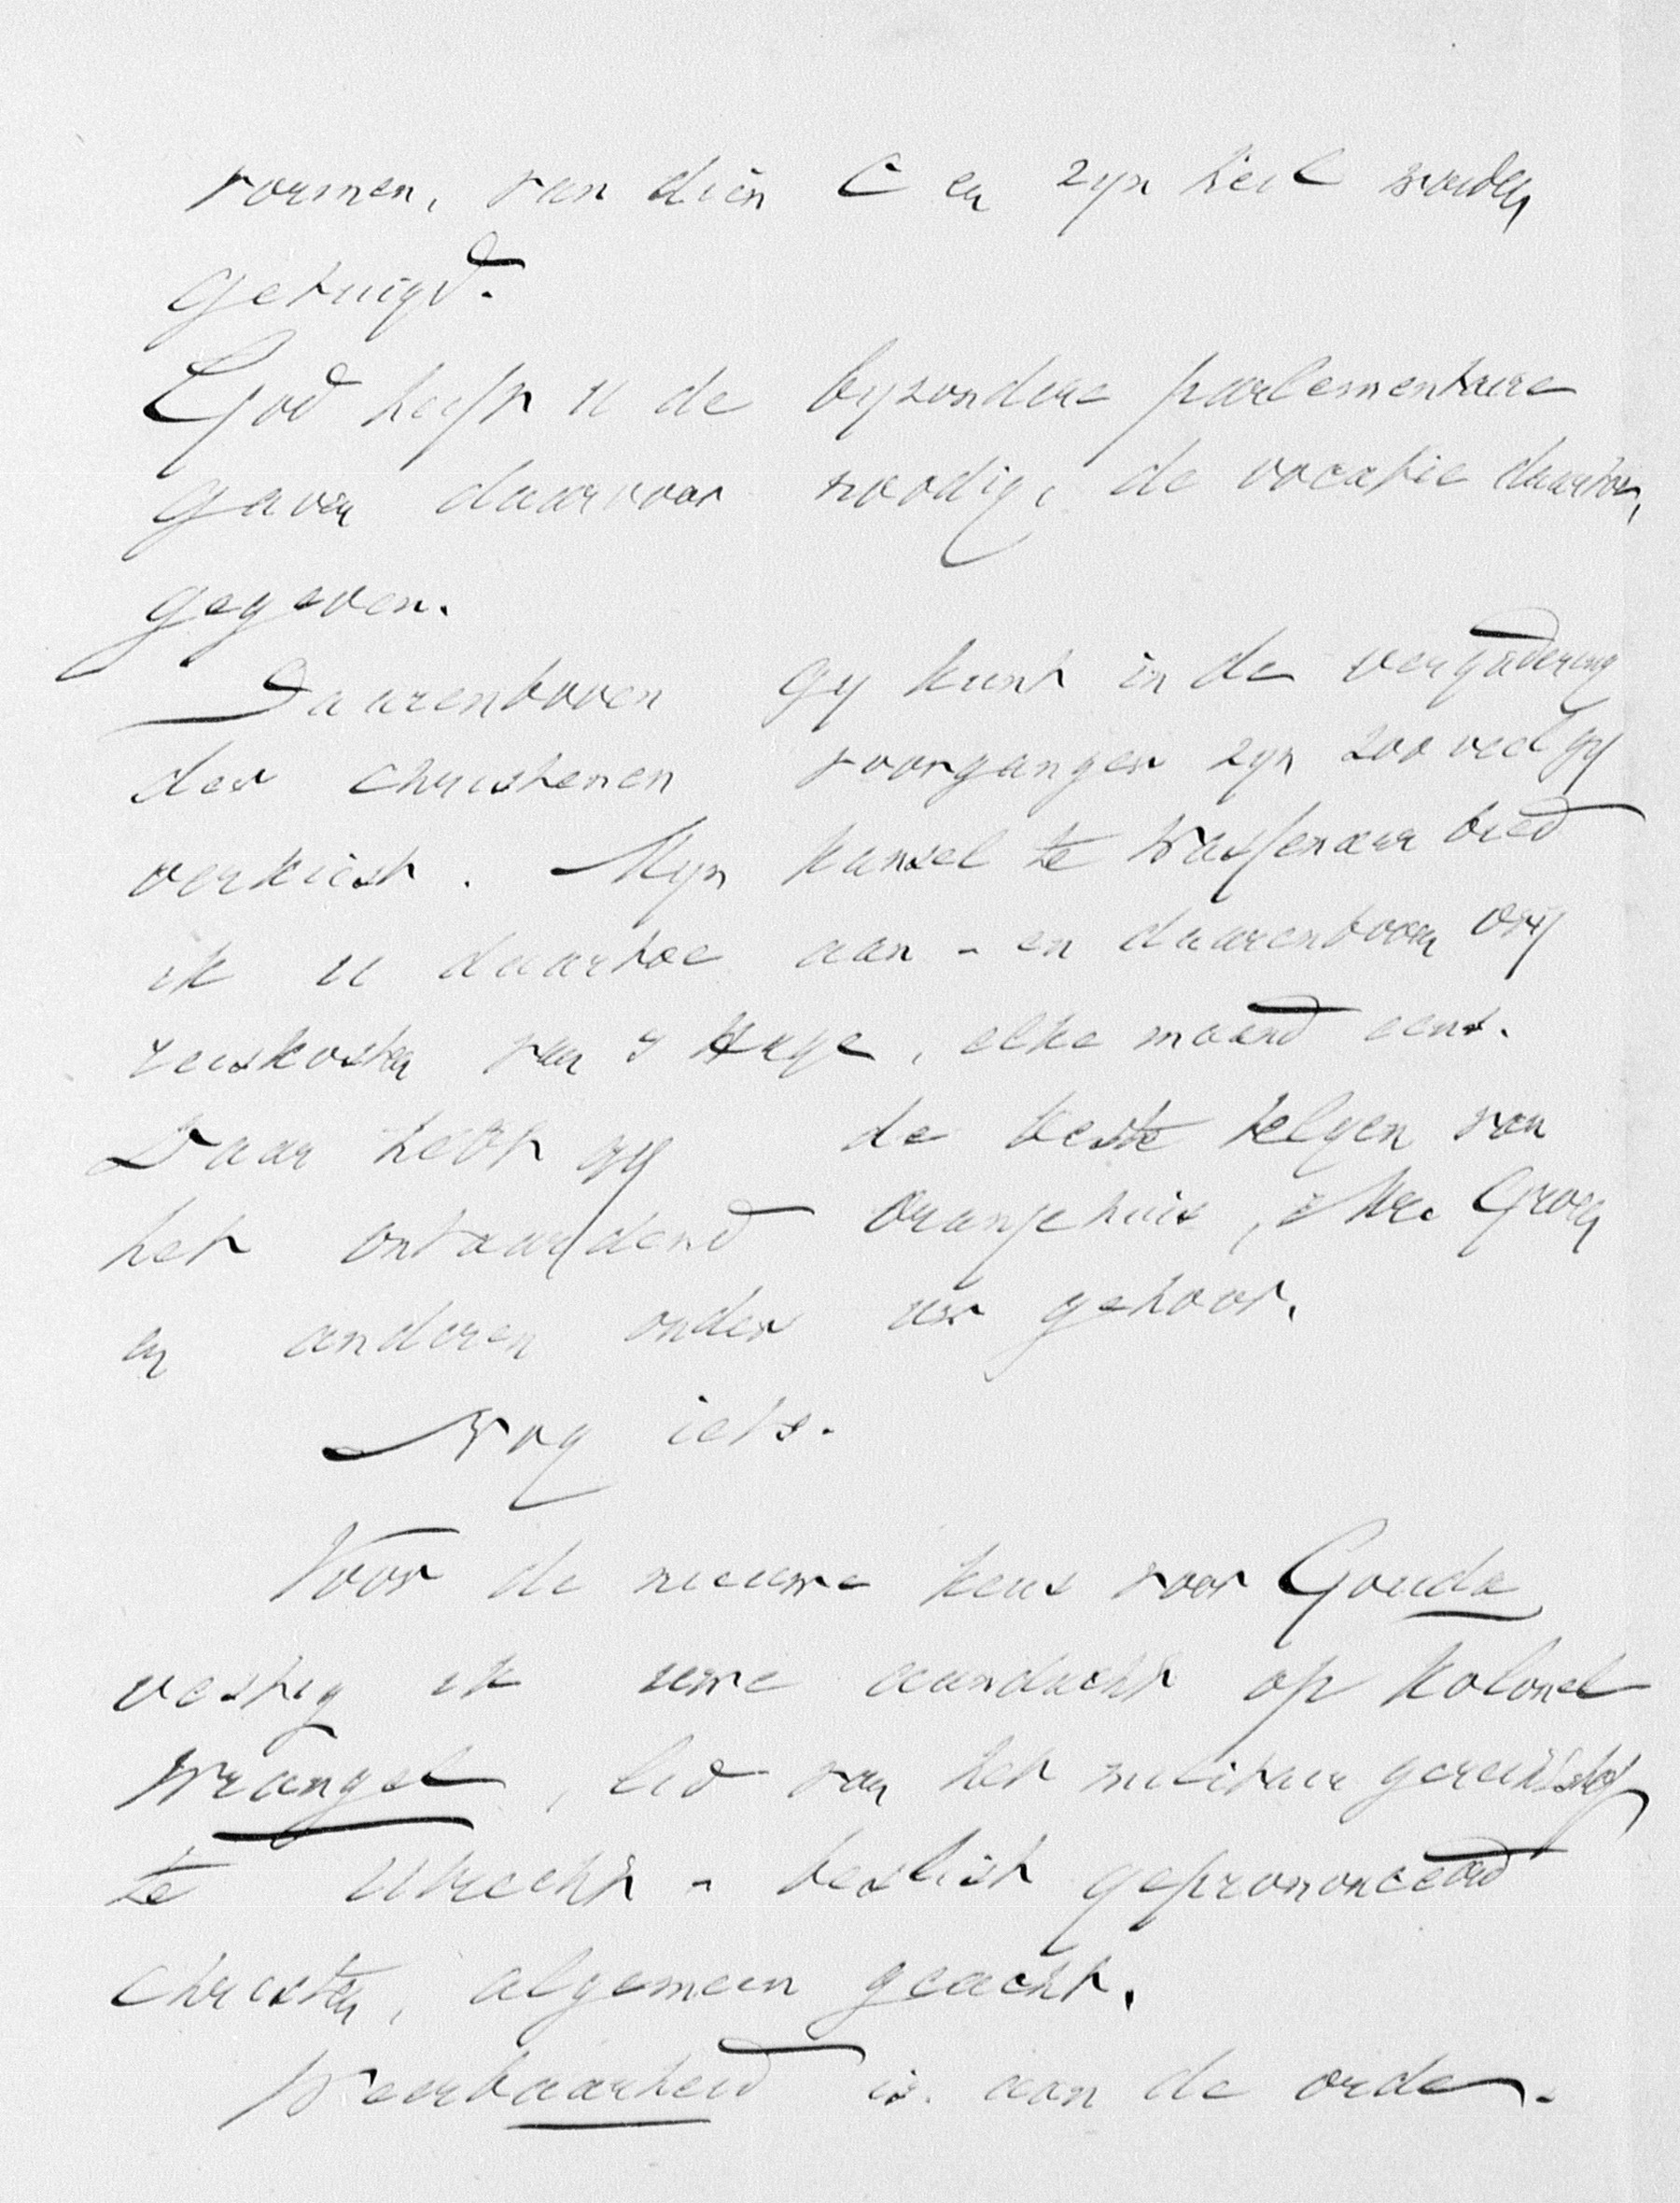 vormen, van dien C en zyn heil worden
getuigd.
God heeft U de byzondere parlementaire
gaven daarvoor noodig, de vocatie daartoe,
gegeven.
Daarenboven gy kunt in de vergadering
der Christenen voorganger zyn zooveel gy
verkiest. Myn kansel te Wassenaar bied
ik U daartoe aan - en daarenboven vrij
reiskosten van 's Hage, elke maand eens.
Daar hebt gy de beste telgen van
het ontaardend Oranjehuis, Mr. Groen
en anderen onder uw gehoor.
Nog iets.
Voor de nieuwe keus voor Gouda
vestig ik uwe aandacht op Kolonel
Wrangel, lid van het militair gerechtshof
te Utrecht - beslist geprononceerd
Christen, algemeen geacht.
Weerbaarheid is aan de orde.